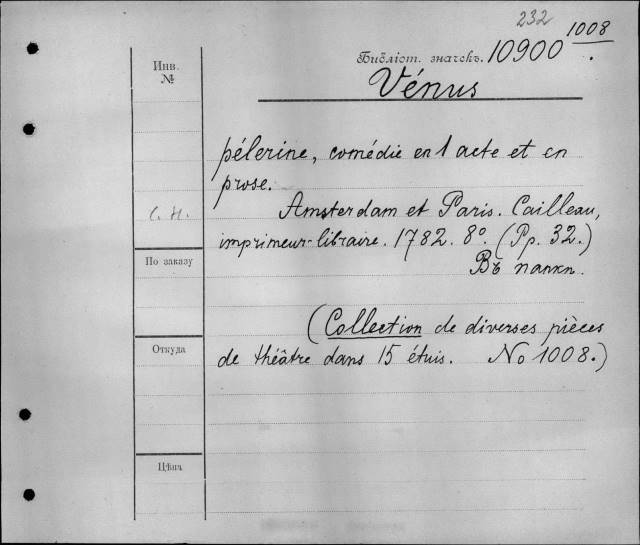 232
Библіот. значекъ. 10900 1008.
Инв. №
Vénus
pélerine, comédie en 1 acte et en
prose.
С. Н.
Amsterdam et Paris. Cailleau,
imprimeur-libraire. 1782. 8º. (Pp. 32.)
Въ папкп.
По заказу
(Collection de diverses pièces
Откуда
de théâtre dans 15 étuis. No 1008.)
Цѣна